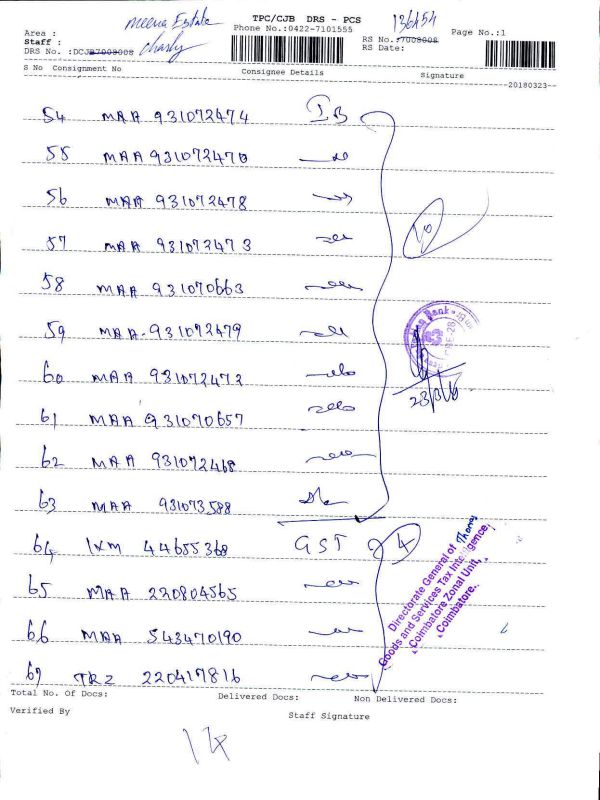 Meena Estate
TPC/CJB DRS - PCS
136454
Area :
Phone No.:0422-7101555
RS No.:7008008
Page No.:1
Staff :
RS Date:
DRS No. :DCJB7008008
S No Consignment No
Consignee Details
Signature
20180323
54 MAA 931072474 IB
55 MAA 931072470
56 MAA 931072478
57 MAA 931072473
58 MAA 931070663
59 MAA-931072479
60 MAA 931072472
61 MAA 931070657
62 MAA 931072468
63 MAA 931073588
64 IXM 44655368 GST 4
65 MAA 220804565
66 MAA 543470190
67 TRZ 220417816
10
Directorate General of
Goods and Services Tax Intelligence,
Coimbatore Zonal Unit,
Coimbatore.
Total No. Of Docs:
Delivered Docs:
Non Delivered Docs:
Verified By
Staff Signature
14